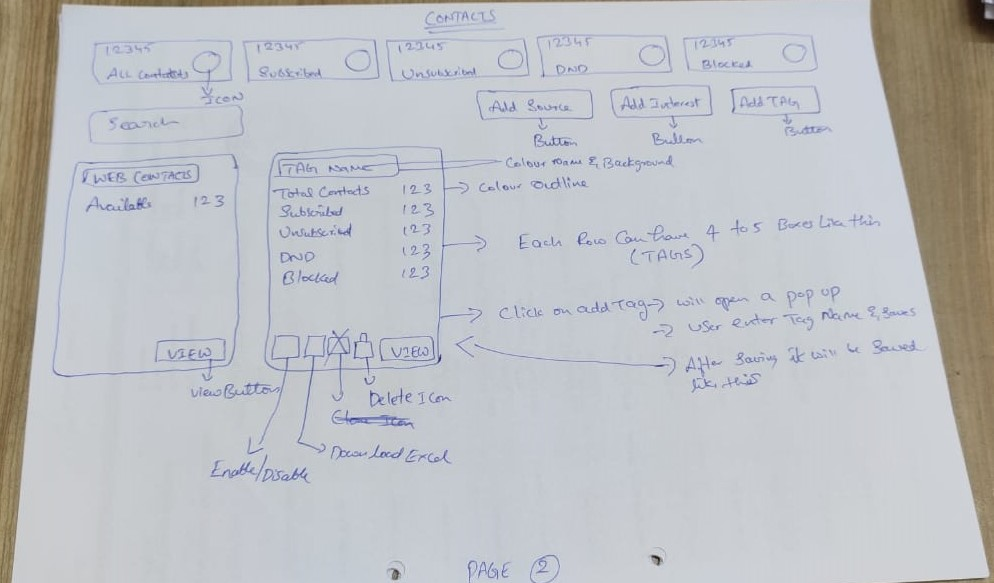 CONTACTS
12345
ALL Contacts
ICON
12345
Subscribed
12345
Unsubscribed
12345
DND
12345
Blocked
Search
Add Source
Button
Add Interest
Button
Add TAG
Button
WEB CONTACTS
Available 123
VIEW
view Button
TAG NAME
Colour name & Background
Total Contacts 123
Colour outline
Subscribed 123
Unsubscribed 123
DND 123
Blocked 123
Each Row Can have 4 to 5 Boxes Like this
(TAGS)
Click on add Tag → will open a pop up
→ user enter Tag Name & Saves
→ After Saving it will be Saved
like this
VIEW
Delete Icon
Download Excel
Enable/Disable
PAGE 2